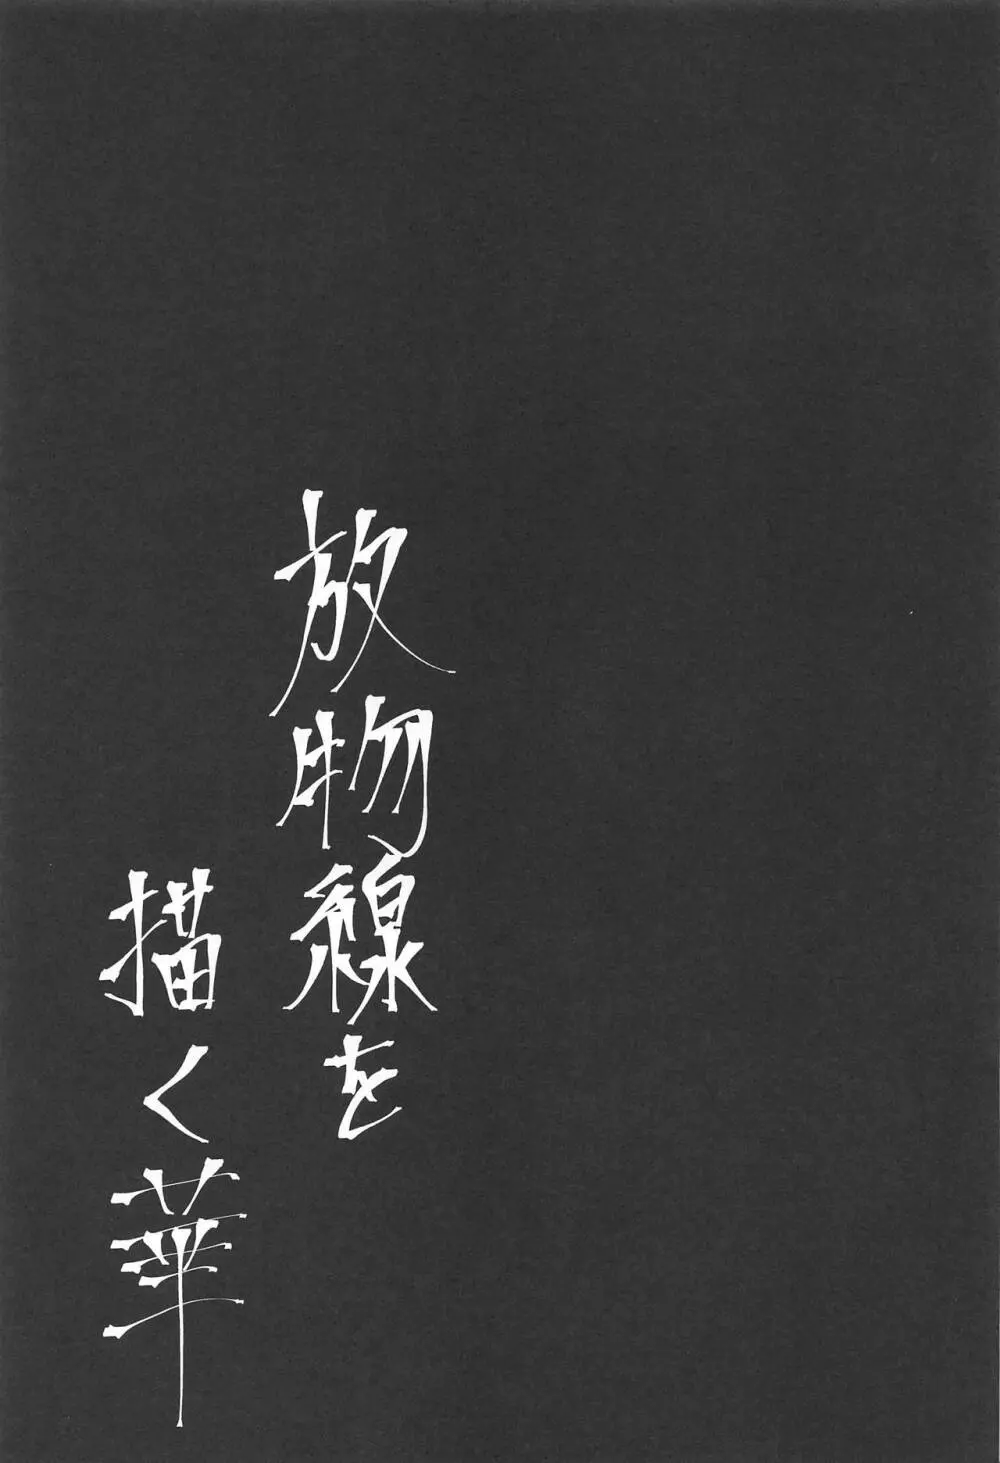 放物線を
描く華